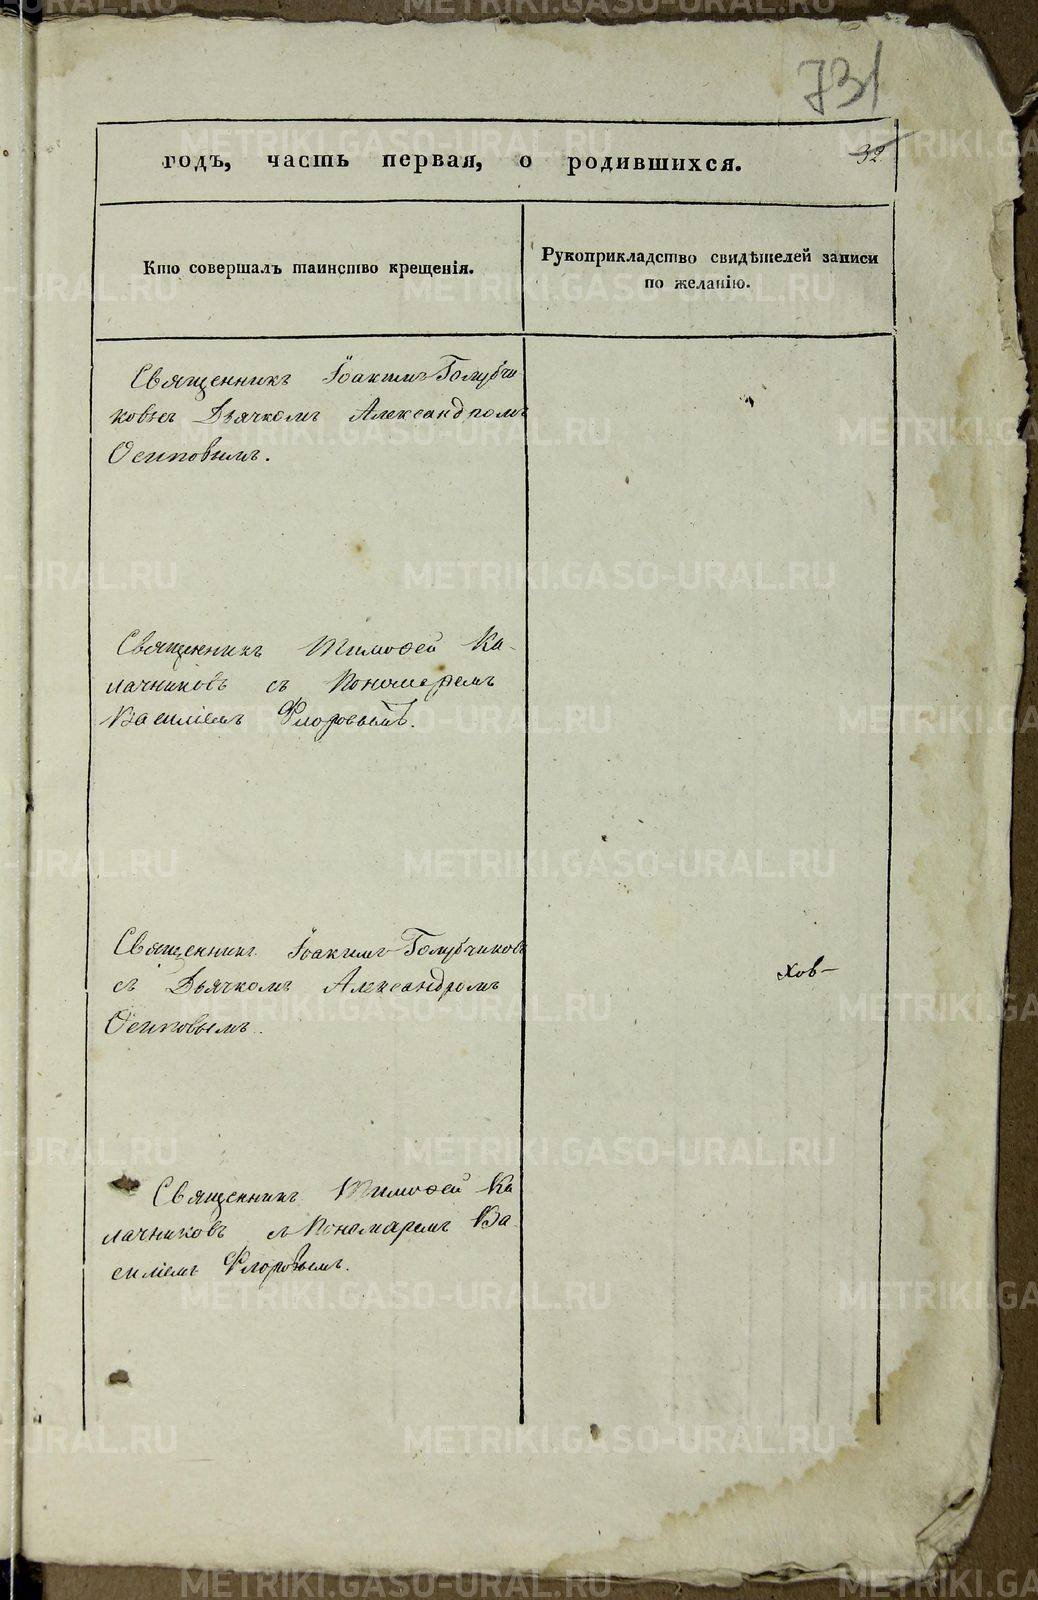 731
годъ, часть первая, о родившихся.
32
Кто совершалъ таинство крещенія.
Рукоприкладство свидѣтелей записи
по желанію.
Священникъ Іоакимъ Голубчи
ковъ съ Дьячкомъ Александромъ
Осиповымъ.
Священникъ Тимофей Ка-
лачниковъ съ Пономаремъ
Василіемъ Флоровымъ.
Священникъ Іоакимъ Голубчиковъ
съ Дьячкомъ Александромъ
Осиповымъ.
хов-
Священникъ Тимофей Ка
лачниковъ съ Пономаремъ Ва
силіемъ Флоровымъ.
METRIKI.GASO-URAL.RU